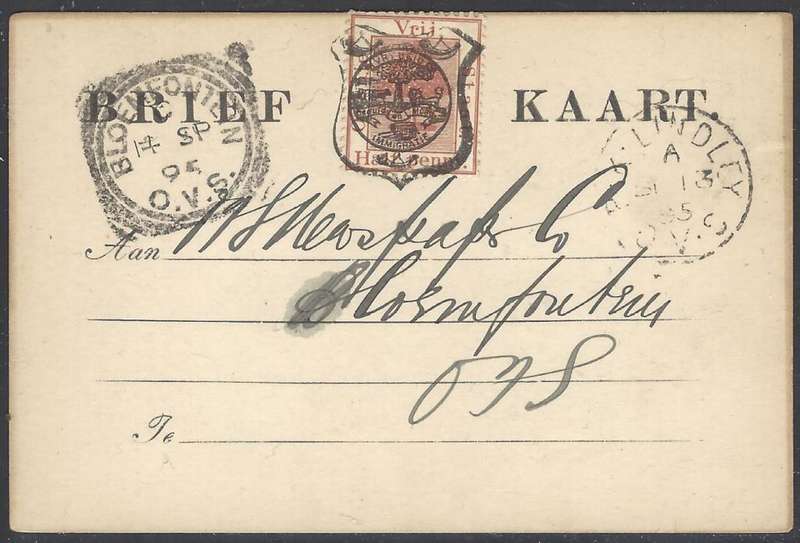 Vrij
Staat
Half penny.
IMMIGRATIE
BRIEF KAART.
BLOEMFONTEIN
14 SP
95
O.V.S.
LINDLEY
A
SP 13
95
O.V.S
Aan
Newspaper Co
Bloemfontein
OFS
Te